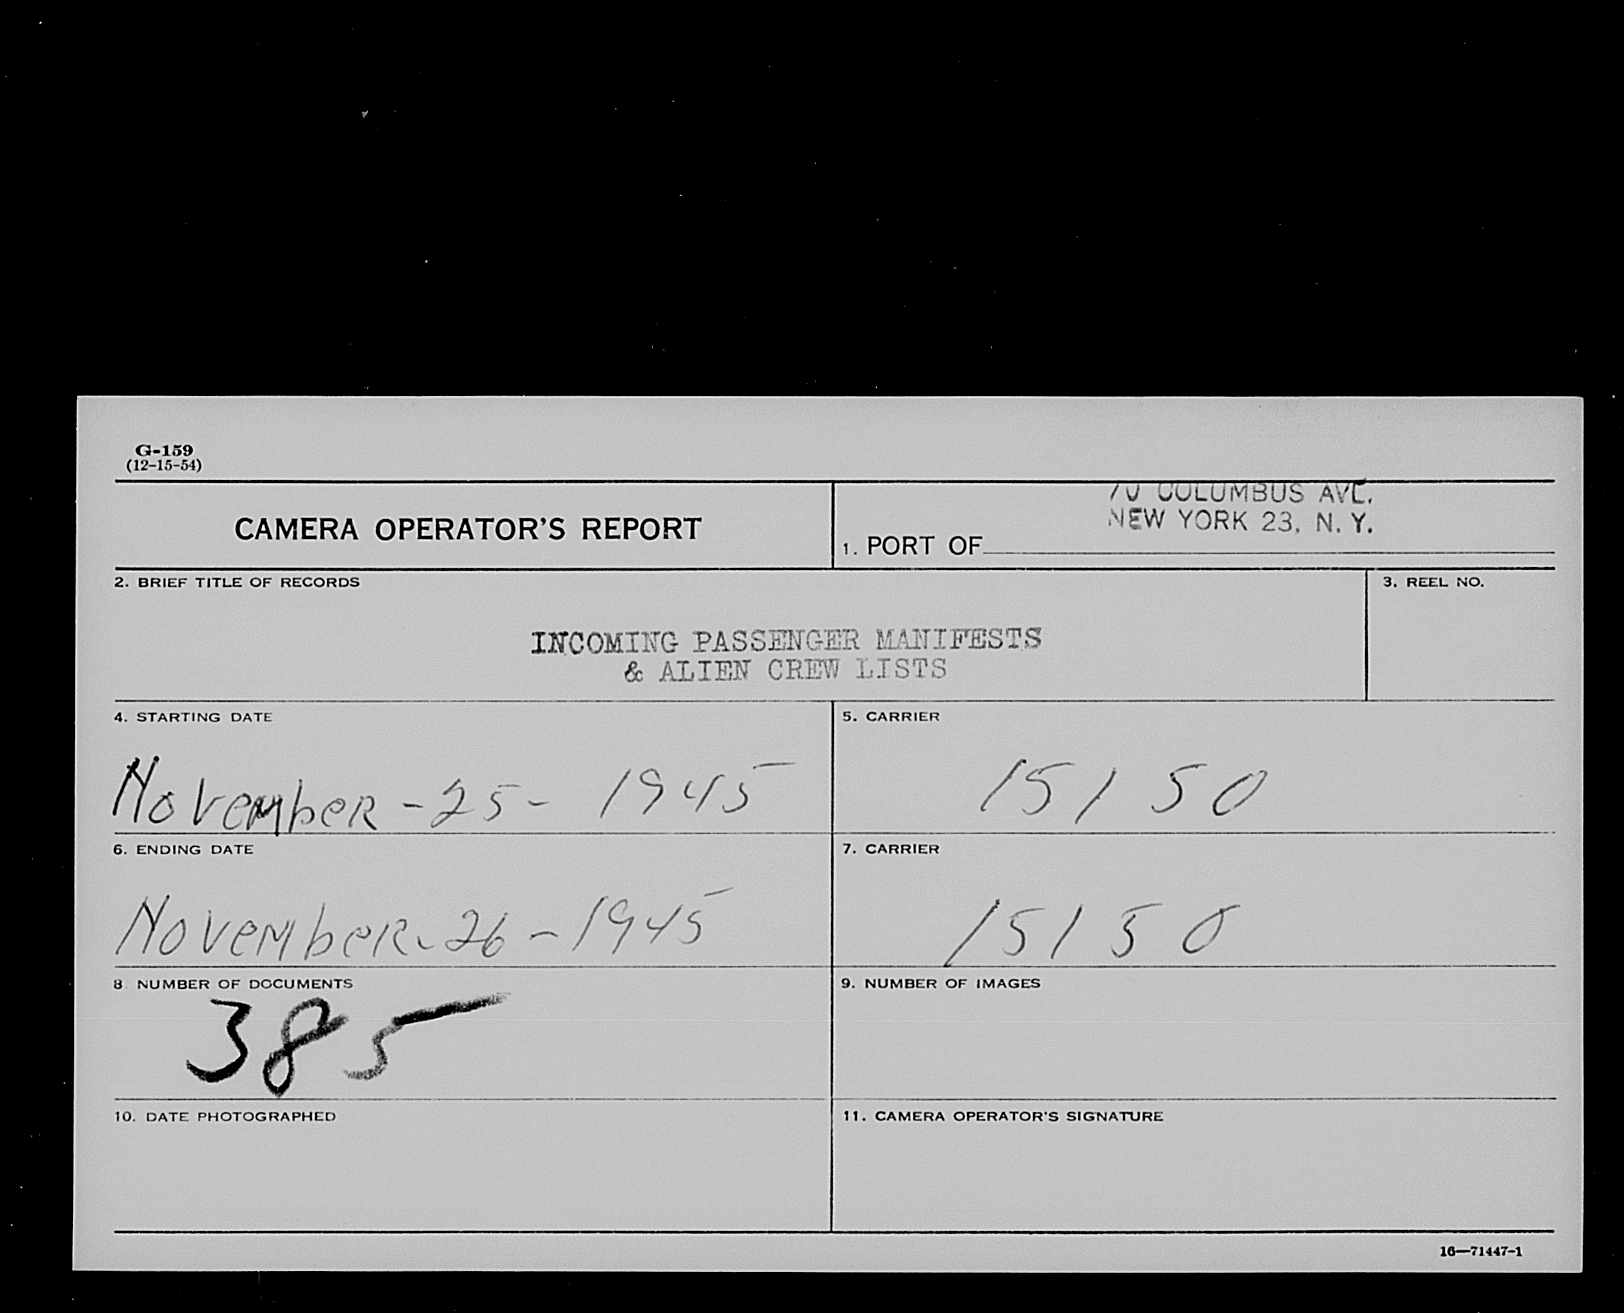 G-159
(12-15-54)
CAMERA OPERATOR'S REPORT
70 COLUMBUS AVE.
NEW YORK 23, N. Y.
1. PORT OF
2. BRIEF TITLE OF RECORDS
3. REEL NO.
INCOMING PASSENGER MANIFESTS
& ALIEN CREW LISTS
4. STARTING DATE
5. CARRIER
November - 25 - 1945
15150
6. ENDING DATE
7. CARRIER
November - 26 - 1945
15150
8 NUMBER OF DOCUMENTS
9. NUMBER OF IMAGES
385
10. DATE PHOTOGRAPHED
11. CAMERA OPERATOR'S SIGNATURE
16—71447-1